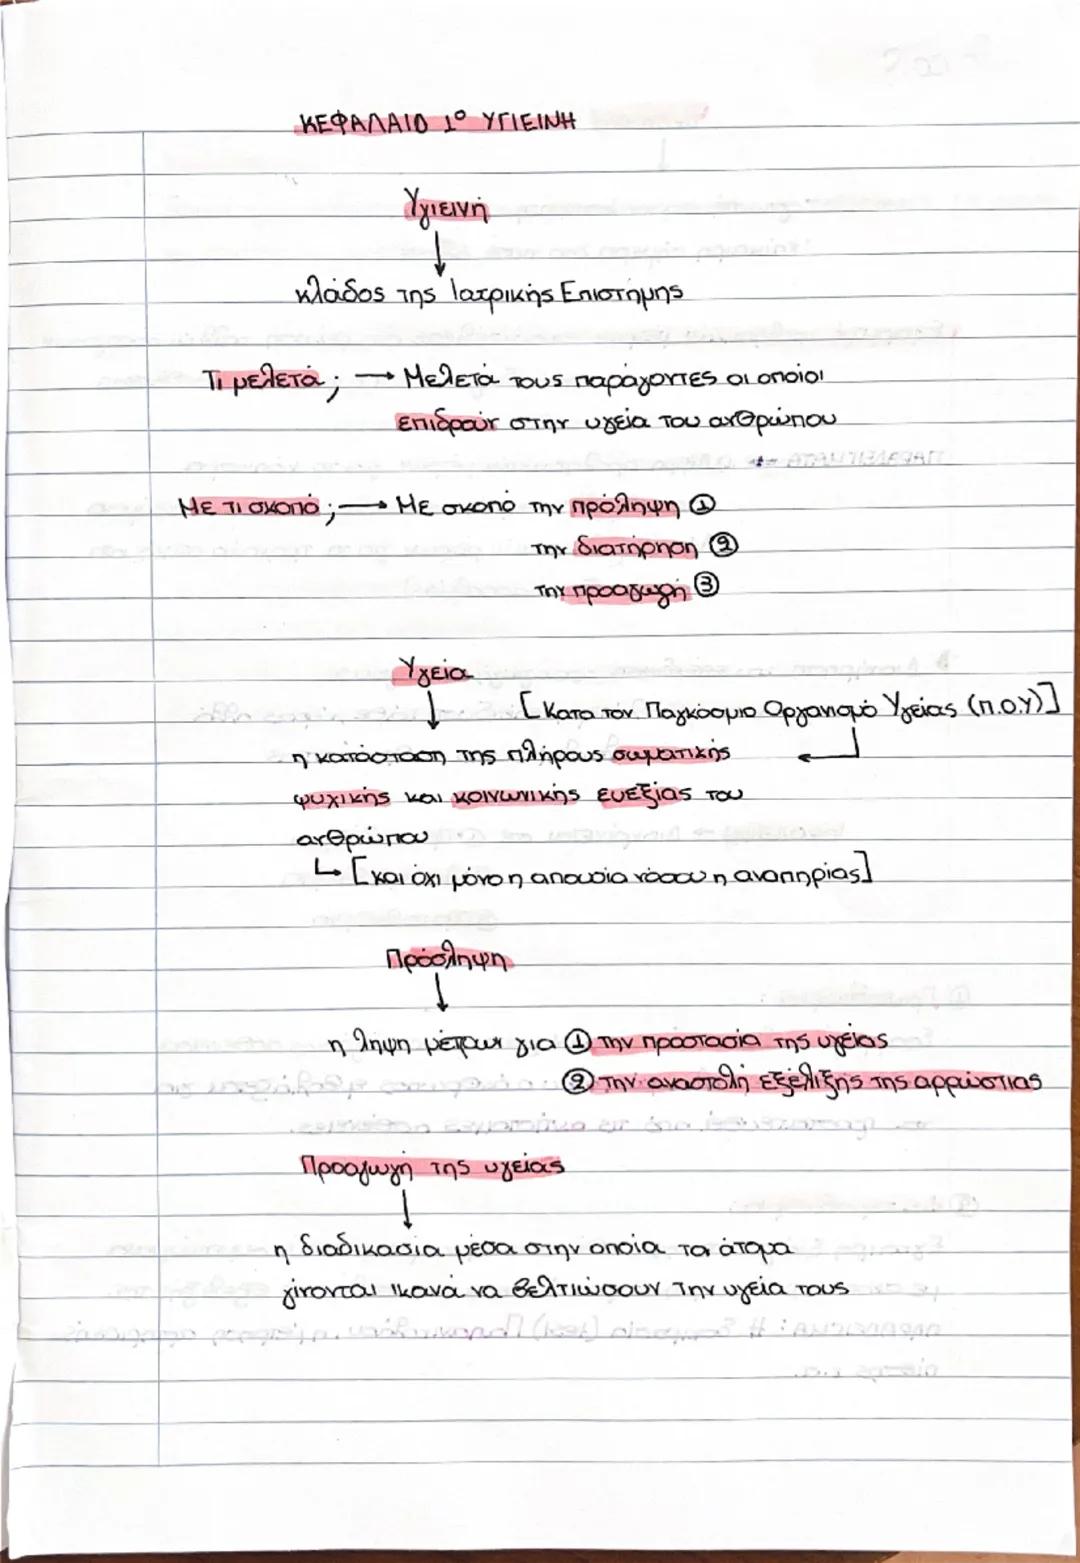 ΚΕΦΑΛΑΙΟ 1º ΥΓΙΕΙΝΗ
Υγιεινή
↓
κλάδος της Ιατρικής Επιστήμης
Τι μελετά; → Μελετά τους παράγοντες οι οποίοι
επιδρούν στην υγεία του ανθρώπου
Με τι σκοπό; → Με σκοπό την πρόληψη ①
την διατήρηση ②
την προαγωγή ③
Υγεία
↓ [Κατα τον Παγκόσμιο Οργανισμό Υγείας (Π.Ο.Υ)]
η κατάσταση της πλήρους σωματικής
ψυχικής και κοινωνικής ευεξίας του
ανθρώπου
↳ [και όχι μόνο η απουσία νόσου η αναπηρίας]
Πρόσληψη
↓
η ληψη μέτρων για ① την προστασία της υγείας
② την αναστολή εξέλιξης της αρρώστιας
Προαγωγή της υγείας
↓
η διαδικασία μέσα στην οποία τα άτομα
γίνονται ικανά να βελτιώσουν την υγεία τους